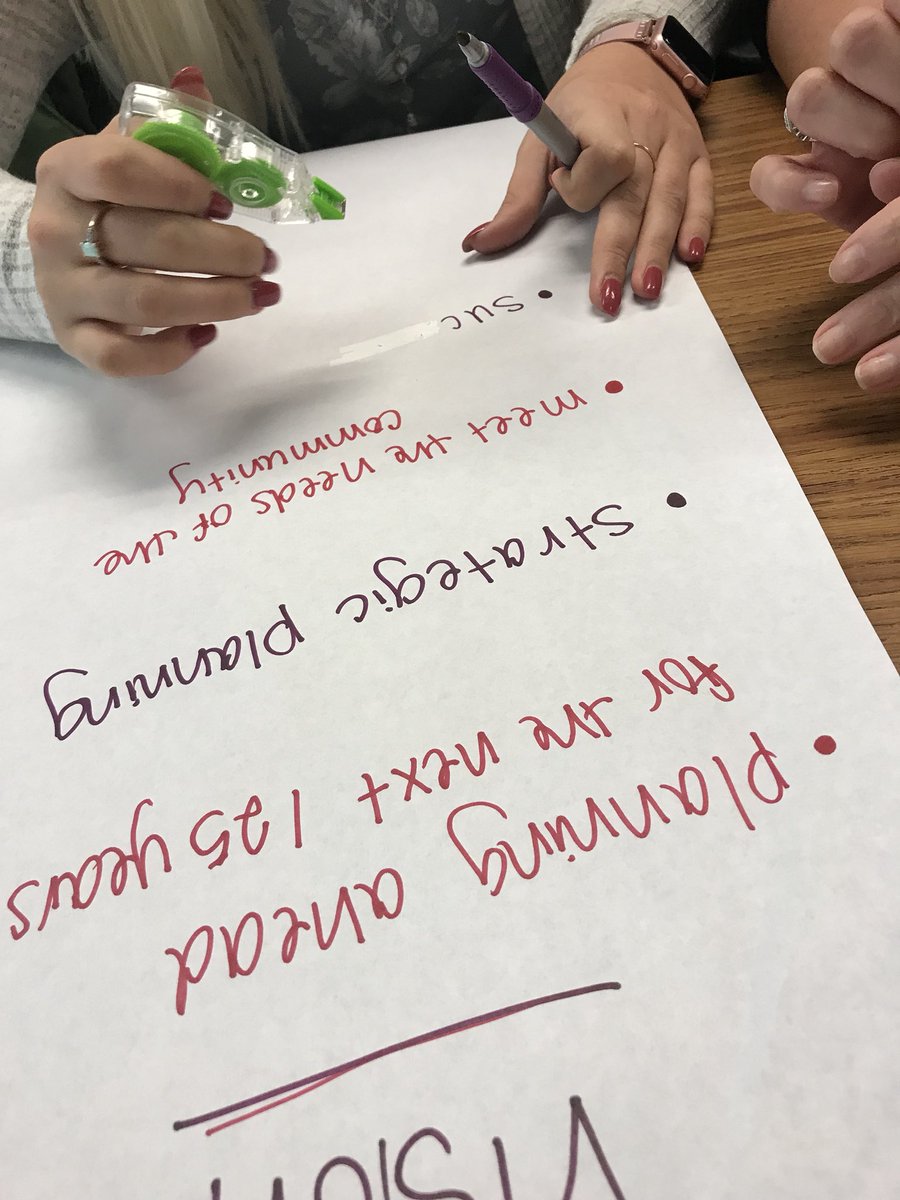 Vision
• planning ahead
for the next 125 years
• strategic planning
• meet the needs of the
community
• suc